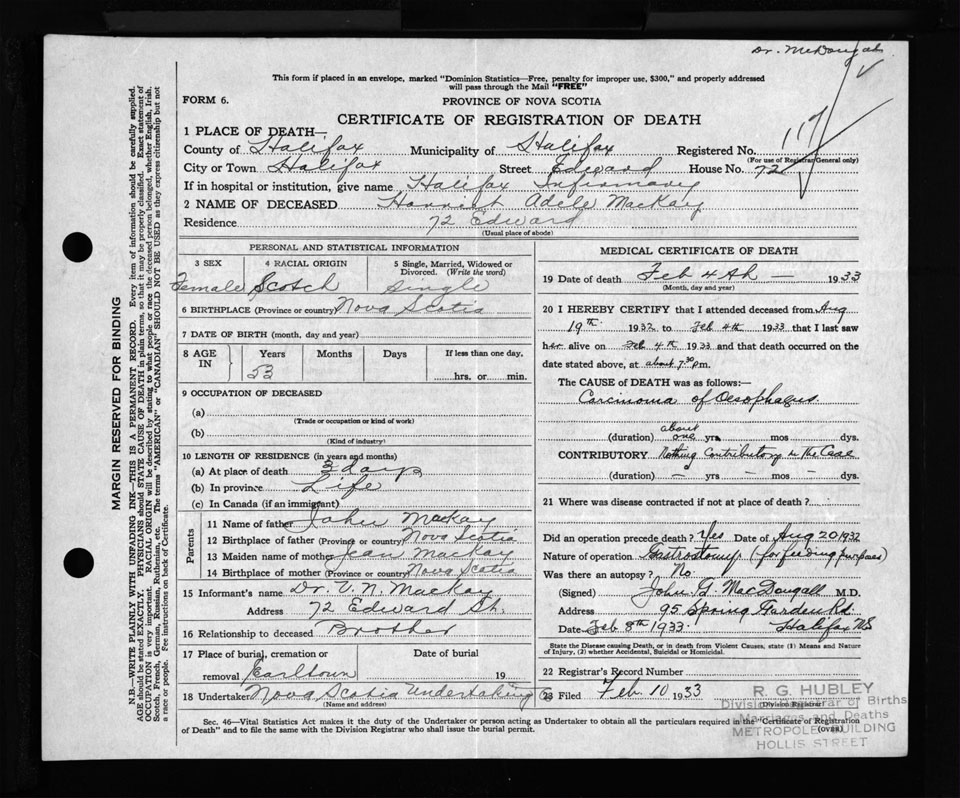 Dr. McDougall
This form if placed in an envelope, marked "Dominion Statistics—Free, penalty for improper use, $300," and properly addressed
will pass through the Mail "FREE"
FORM 6.
PROVINCE OF NOVA SCOTIA
CERTIFICATE OF REGISTRATION OF DEATH
117
1 PLACE OF DEATH—
County of Halifax Municipality of Halifax Registered No.
(For use of Registrar General only)
City or Town Halifax Street Edward House No. 72
If in hospital or institution, give name Halifax Infirmary
2 NAME OF DECEASED Harriet Adele MacKay
Residence 72 Edward
(Usual place of abode)
PERSONAL AND STATISTICAL INFORMATION
3 SEX 4 RACIAL ORIGIN 5 Single, Married, Widowed or Divorced. (Write the word)
Female Scotch Single
6 BIRTHPLACE (Province or country) Nova Scotia
7 DATE OF BIRTH (month, day and year)
8 AGE IN Years Months Days If less than one day,
53 hrs. or min.
9 OCCUPATION OF DECEASED
(a)
(Trade or occupation or kind of work)
(b)
(Kind of industry)
10 LENGTH OF RESIDENCE (in years and months)
(a) At place of death 3 days
(b) In province Life
(c) In Canada (if an immigrant)
Parents
11 Name of father John MacKay
12 Birthplace of father (Province or country) Nova Scotia
13 Maiden name of mother Jean MacKay
14 Birthplace of mother (Province or country) Nova Scotia
15 Informant's name Dr. V. N. MacKay
Address 72 Edward St.
16 Relationship to deceased Brother
17 Place of burial, cremation or removal Date of burial
Earltown 19
18 Undertaker Nova Scotia Undertaking Co
(Name and address)
MEDICAL CERTIFICATE OF DEATH
19 Date of death Feb 4th — 1933
(Month, day and year)
20 I HEREBY CERTIFY that I attended deceased from Aug
19th 1932 to Feb 4th 1933 that I last saw
her alive on Feb 4th 1933 and that death occurred on the
date stated above, at about 7.30 p.m.
The CAUSE OF DEATH was as follows:—
Carcinoma of Oesophagus
(duration) about one yrs. mos dys.
CONTRIBUTORY Nothing Contributory in the Case
(duration) — yrs. — mos — dys.
21 Where was disease contracted if not at place of death?
Did an operation precede death? Yes Date of Aug 20 1932
Nature of operation Gastrostomy (for feeding purposes)
Was there an autopsy? No
(Signed) John G. MacDougall M.D.
Address 95 Spring Garden Rd
Date Feb 8th 1933. Halifax NS
State the Disease causing Death, or in death from Violent Causes, state (1) Means and Nature of Injury, (2) whether Accidental, Suicidal or Homicidal.
22 Registrar's Record Number
23 Filed Feb 10 1933
(Division Registrar)
R. G. HUBLEY
Division Registrar of Births
Marriages and Deaths
METROPOLE BUILDING
HOLLIS STREET
Sec. 46—Vital Statistics Act makes it the duty of the Undertaker or person acting as Undertaker to obtain all the particulars required in the "Certificate of Registration
of Death" and to file the same with the Division Registrar who shall issue the burial permit.
(OVER)
MARGIN RESERVED FOR BINDING
N.B.—WRITE PLAINLY WITH UNFADING INK—THIS IS A PERMANENT RECORD. Every item of information should be carefully supplied.
AGE should be stated EXACTLY. PHYSICIANS should STATE CAUSE OF DEATH in plain terms, so that it may be properly classified. Exact statement of
OCCUPATION is very important. RACIAL ORIGIN will be described by stating to what people or race the deceased person belonged, whether English, Irish,
Scotch, French, German, Russian, Ruthenian, etc. The terms "AMERICAN" or "CANADIAN" SHOULD NOT BE USED as they express citizenship but not
a race or people. See instructions on back of Certificate.